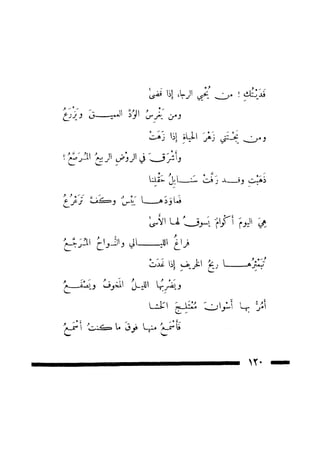 فَدَيْتُكِ! من يُحْيِي الرجا، إذا قضىٰ
ومن يَغْرِسُ الوُدَّ العميـــق وَيَزْرَعُ
ومن يَجْتَني زَهْرَ الحياةِ إذا زَهَتْ
وأشْرَقَ في الروْضِ الربيعُ المُرَصَّعُ!
ذَهَبْتِ وقــد رَفَّتْ سَنــابِلُ حَقْلِنا
فعاوَدَهــا يُبْسٌ وكَفَّ تَرَعْرُعُ
هيَ اليومَ أكْوامٌ يَسوقُ لها الأسىٰ
فراغُ الليـــالي والنُّواحُ المُرَجَّعُ
تُبَعْثِرُهـــا ريحُ الخريفِ إذا غَدَتْ
ويَضْرِبُها الليلُ المَخوفُ ويَصْفَعُ
أمُرُّ بها أسْوانَ مُخْتَلِجَ الحَشــا
فأسْمَعُ منها فوقَ ما كنتُ أسْمَعُ
١٢٠